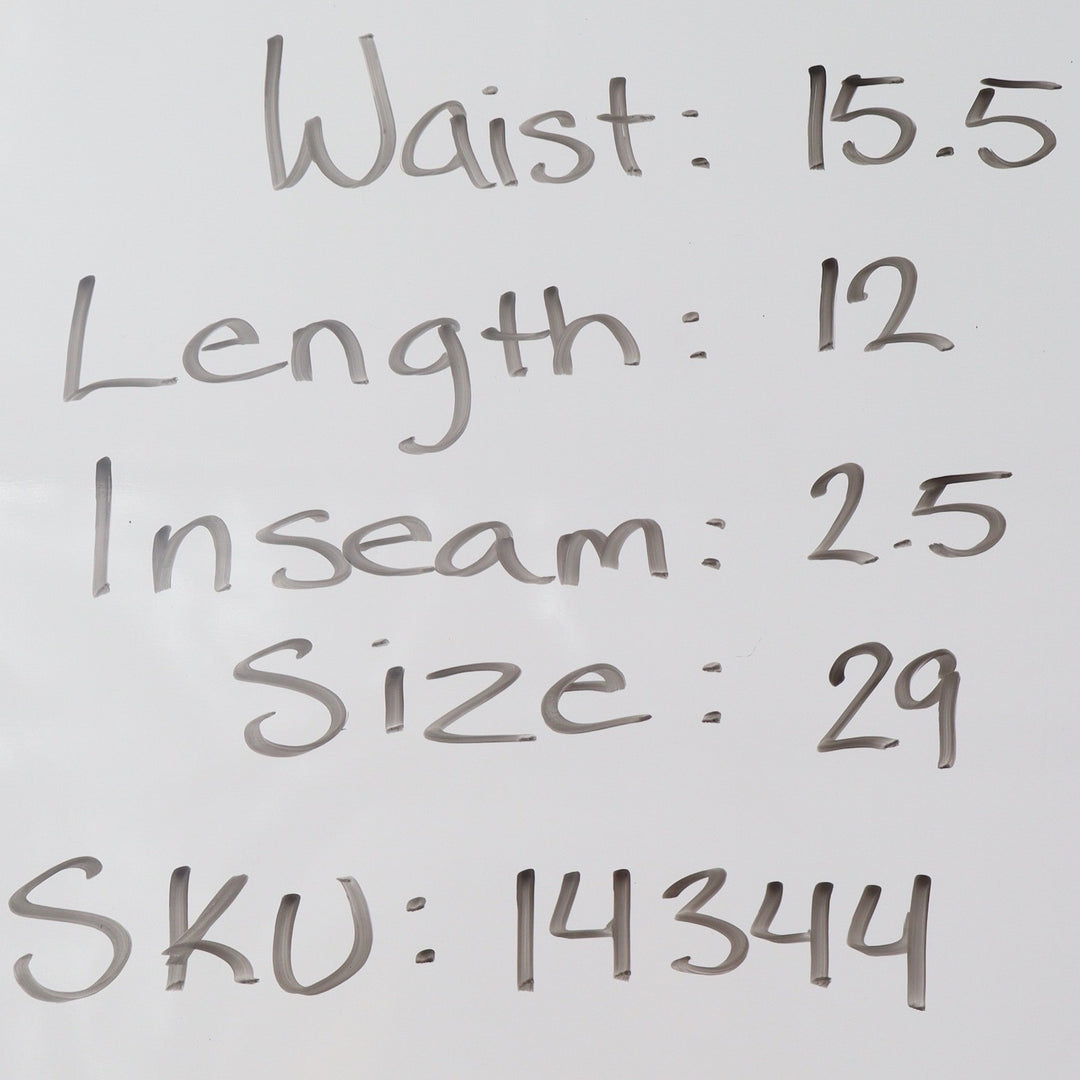 Waist: 15.5
Length: 12
Inseam: 2.5
Size: 29
SKU: 14344